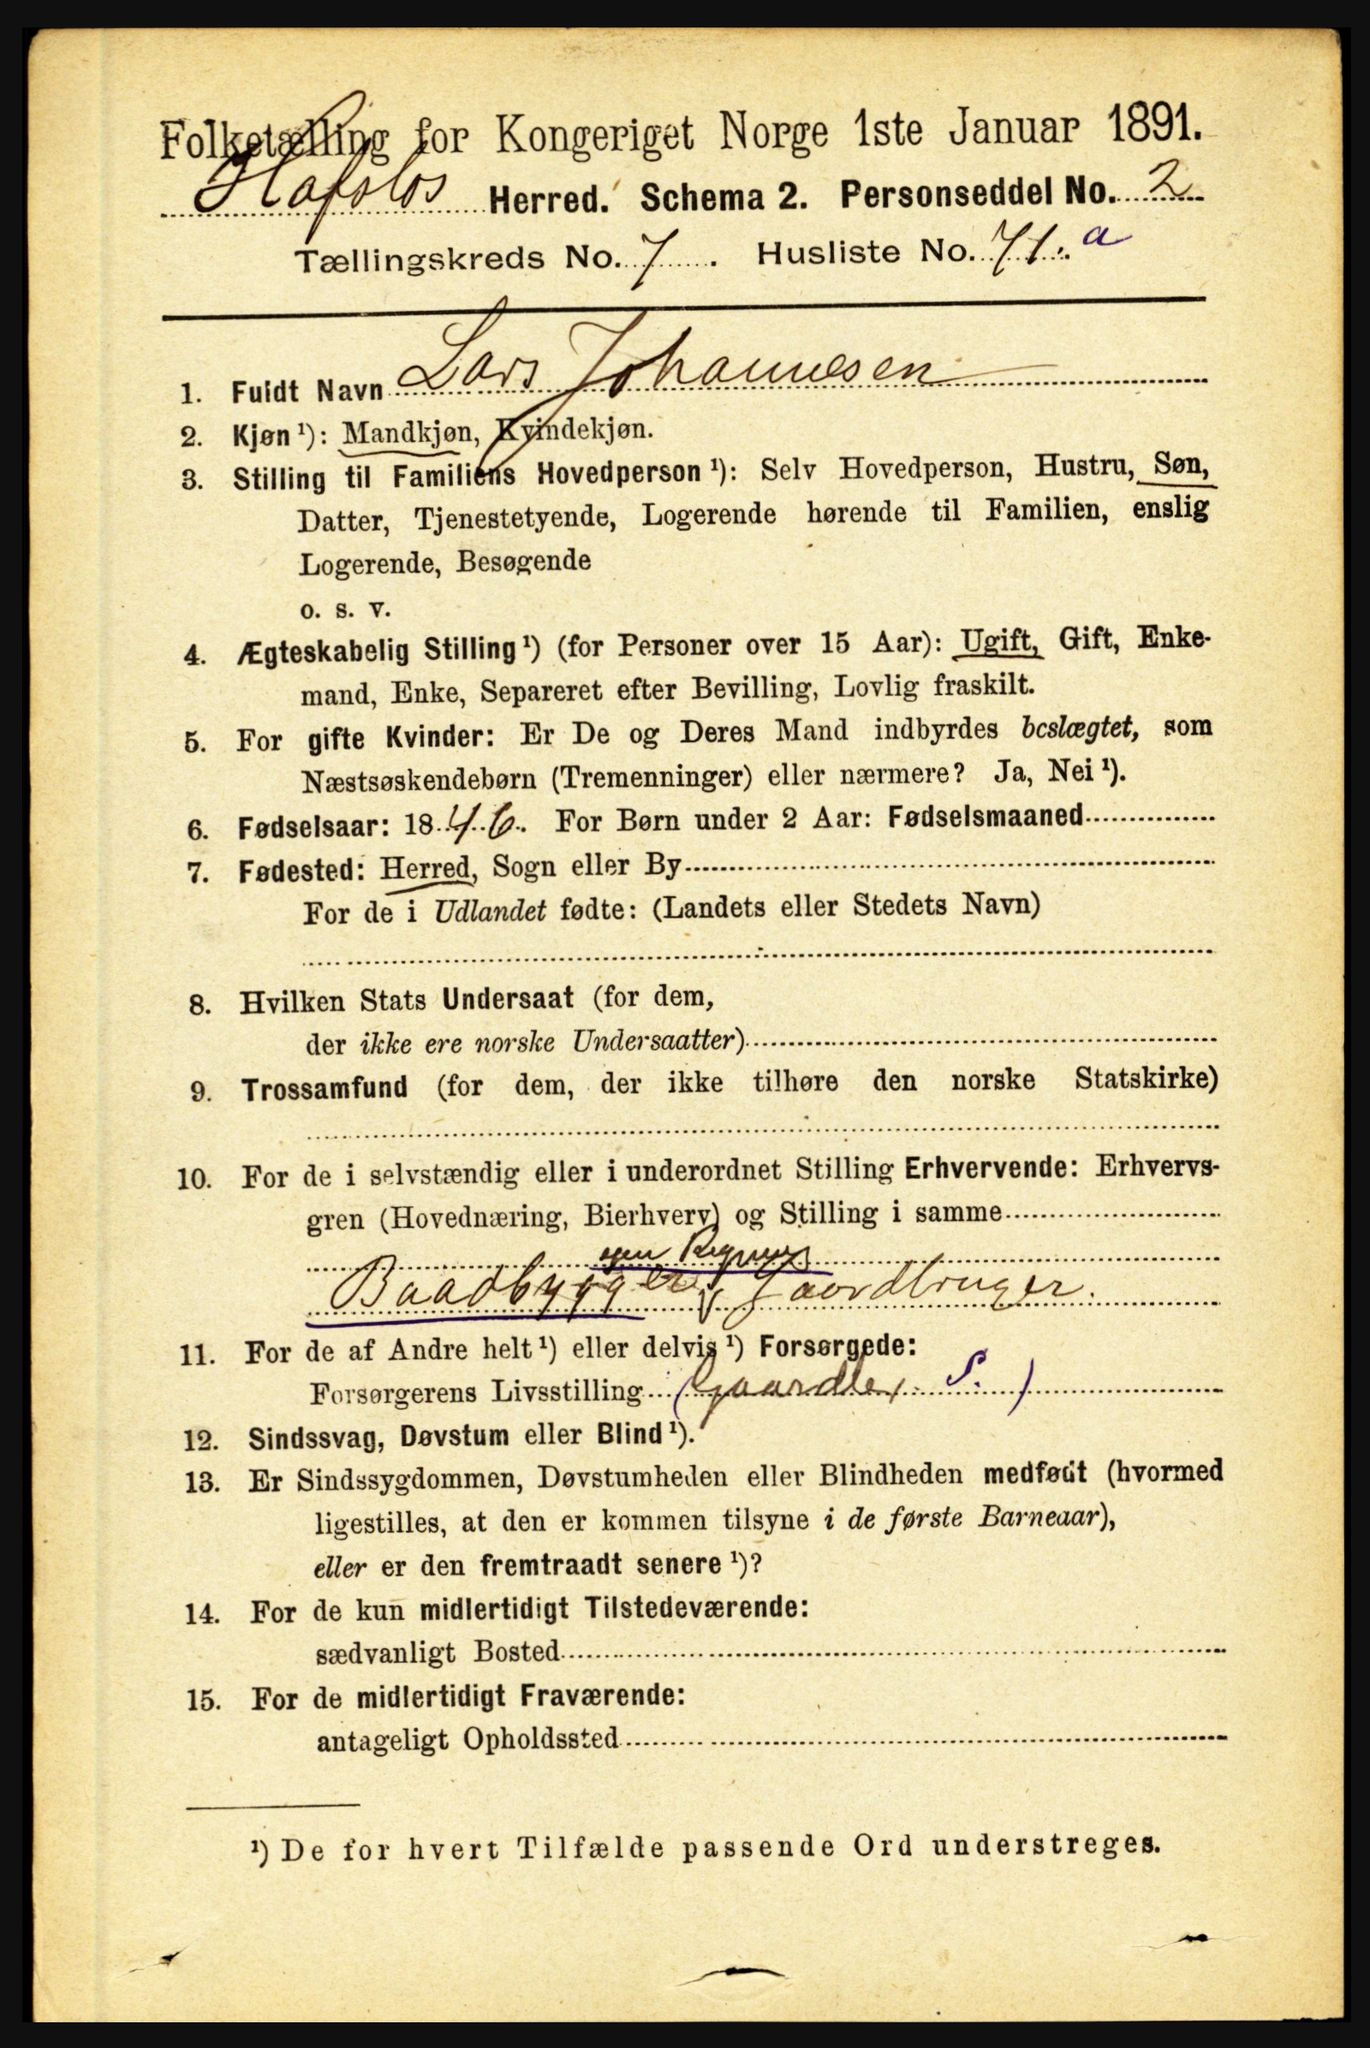 Folketælling for Kongeriget Norge 1ste Januar 1891.
Hafslo Herred. Schema 2. Personseddel No. 2
Tællingskreds No. 7. Husliste No. 71.a
1. Fuldt Navn Lars Johannesen
2. Kjøn ¹): Mandkjøn, Kvindekjøn.
3. Stilling til Familiens Hovedperson ¹): Selv Hovedperson, Hustru, Søn,
Datter, Tjenestetyende, Logerende hørende til Familien, enslig
Logerende, Besøgende
o. s. v.
4. Ægteskabelig Stilling ¹) (for Personer over 15 Aar): Ugift, Gift, Enke-
mand, Enke, Separeret efter Bevilling, Lovlig fraskilt.
5. For gifte Kvinder: Er De og Deres Mand indbyrdes beslægtet, som
Næstsøskendebørn (Tremenninger) eller nærmere? Ja, Nei ¹).
6. Fødselsaar: 1846. For Børn under 2 Aar: Fødselsmaaned
7. Fødested: Herred, Sogn eller By
For de i Udlandet fødte: (Landets eller Stedets Navn)
8. Hvilken Stats Undersaat (for dem,
der ikke ere norske Undersaatter)
9. Trossamfund (for dem, der ikke tilhøre den norske Statskirke)
10. For de i selvstændig eller i underordnet Stilling Erhvervende: Erhvervs-
gren (Hovednæring, Bierhverv) og Stilling i samme
egen Regning
Baadbygger Gaardbruger.
11. For de af Andre helt ¹) eller delvis ¹) Forsørgede:
Forsørgerens Livsstilling (Gaardbr. S.)
12. Sindssvag, Døvstum eller Blind ¹).
13. Er Sindssygdommen, Døvstumheden eller Blindheden medfødt (hvormed
ligestilles, at den er kommen tilsyne i de første Barneaar),
eller er den fremtraadt senere ¹)?
14. For de kun midlertidigt Tilstedeværende:
sædvanligt Bosted
15. For de midlertidigt Fraværende:
antageligt Opholdssted
¹) De for hvert Tilfælde passende Ord understreges.